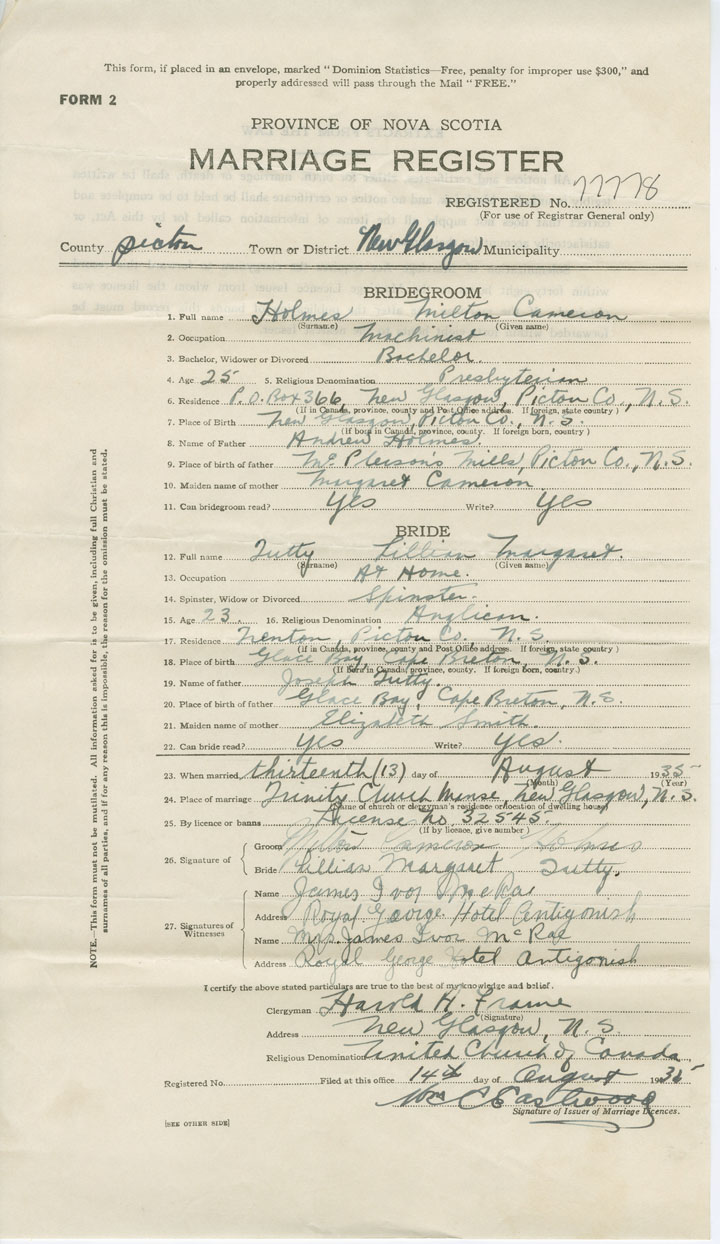 This form, if placed in an envelope, marked "Dominion Statistics—Free, penalty for improper use $300," and
properly addressed will pass through the Mail "FREE."
FORM 2
PROVINCE OF NOVA SCOTIA
MARRIAGE REGISTER
REGISTERED No. 77778
(For use of Registrar General only)
County Picton Town or District New Glasgow Municipality
BRIDEGROOM
1. Full name Holmes Milton Cameron
(Surname) (Given name)
2. Occupation Machinist
3. Bachelor, Widower or Divorced Bachelor.
4. Age 25 5. Religious Denomination Presbyterian
6. Residence P.O. Box 366, New Glasgow, Picton Co., N.S.
(If in Canada, province, county and Post Office address. If foreign, state country)
7. Place of Birth New Glasgow, Picton Co., N.S.
(If born in Canada, province, county. If foreign born, country.)
8. Name of Father Andrew Holmes.
9. Place of birth of father McPherson's Mills, Picton Co., N.S.
10. Maiden name of mother Margaret Cameron
11. Can bridegroom read? Yes Write? Yes
BRIDE
12. Full name Tutty Lillian Margaret.
(Surname) (Given name)
13. Occupation At Home.
14. Spinster, Widow or Divorced Spinster.
15. Age 23. 16. Religious Denomination Anglican.
17. Residence Trenton, Picton Co. N.S.
(If in Canada, province, county and Post Office address. If foreign, state country)
18. Place of birth Glace Bay, Cape Breton, N.S.
(If born in Canada, province, county. If foreign born, country.)
19. Name of father Joseph Tutty.
20. Place of birth of father Glace Bay, Cape Breton, N.S.
21. Maiden name of mother Elizabeth Smith.
22. Can bride read? Yes Write? Yes.
23. When married thirteenth (13) day of August 1935
(Month) (Year)
24. Place of marriage Trinity Church Manse, New Glasgow, N.S.
(Name of church or clergyman's residence or location of dwelling house)
25. By licence or banns License No. 32545.
(If by licence, give number)
26. Signature of
Groom Milton Cameron Holmes
Bride Lillian Margaret Tutty.
27. Signatures of Witnesses
Name James Ivor McRae
Address Royal George Hotel Antigonish
Name Mrs. James Ivor McRae
Address Royal George Hotel Antigonish
I certify the above stated particulars are true to the best of my knowledge and belief.
Clergyman Harold H. Frame
(Signature)
Address New Glasgow, N.S.
Religious Denomination United Church of Canada
Registered No. Filed at this office 14th day of August 1935
Wm C Eastwood
Signature of Issuer of Marriage Licences.
[SEE OTHER SIDE]
NOTE.—This form must not be mutilated. All information asked for is to be given, including full Christian and
surnames of all parties, and if for any reason this is impossible, the reason for the omission must be stated.